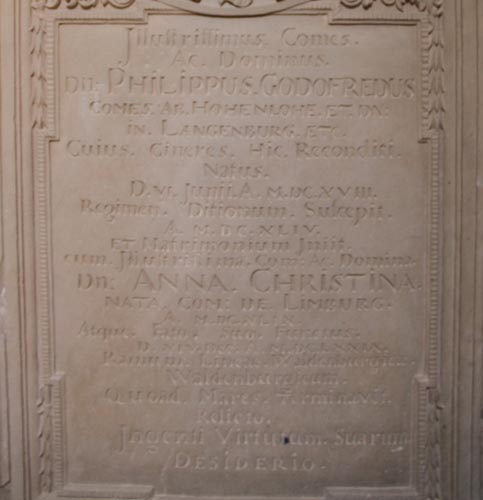 Illustrissimus. Comes.
Ac. Dominus.
Dn: PHILIPPUS. GODOFREDUS
COMES. AB. HOHENLOHE. ET. DN:
IN. LANGENBURG. ETC.
Cuius. Cineres. Hic. Reconditi.
Natus.
D. VI. Junii. A. M.DC.XVIII.
Regimen. Ditionum. Suscepit.
A. M.DC.XLIV.
ET Matrimonium Iniit.
cum. Illustrissima. Com: Ac. Domina.
Dn: ANNA. CHRISTINA.
NATA. COM: DE. LIMBURG.
A. M.DCXLIX.
Atque. Fato. Suo. Functus.
D. XIV. Dec A. M.DCLXXIX.
Ramum. Lineae. Waldenburgicae
Waldenburgicum.
Quoad. Mares. Terminavit.
Relicto.
Ingenti Virtutum. Suarum
DESIDERIO.